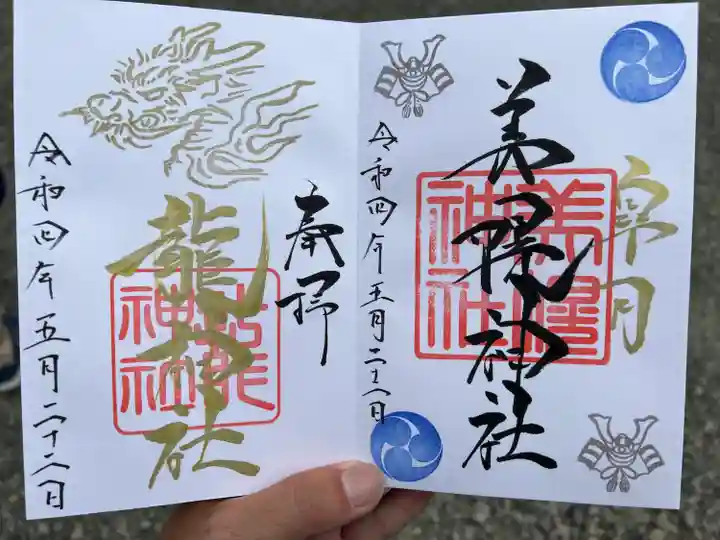 皐月
美幌神社
美幌
神社
令和四年五月二十八日
奉拝
龍神社
龍
神社
令和四年五月二十八日